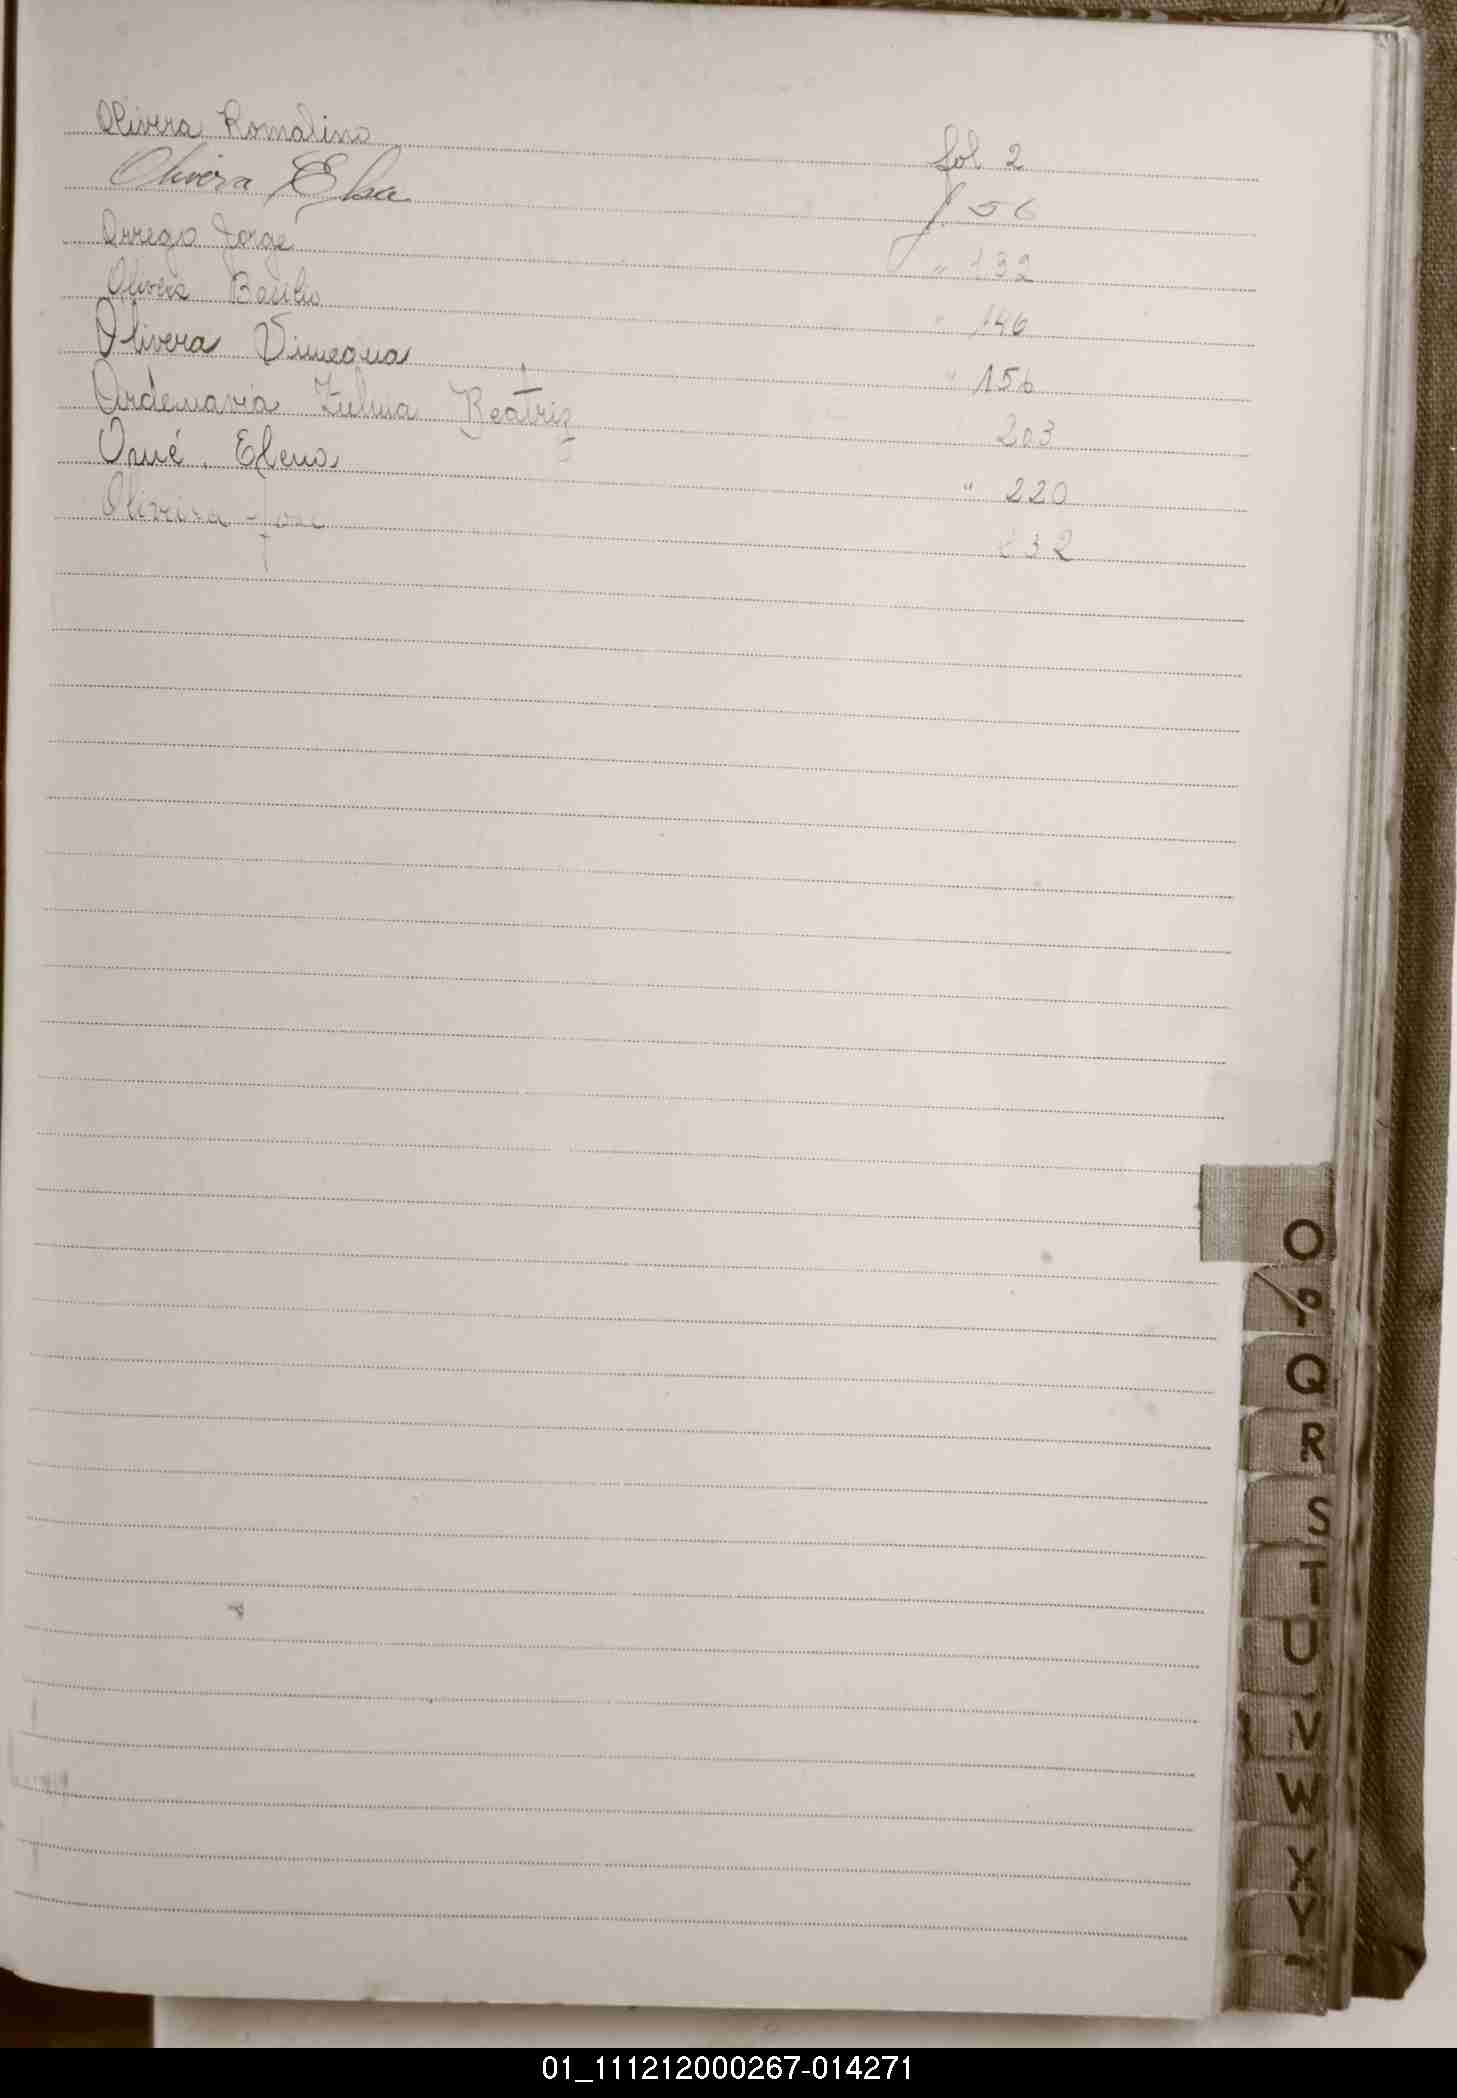 Olivera Romalino fol 2
Olivera Elsa f 56
Orrego Jorge " 132
Olivera Basilio " 146
Olivera " 156
Zulma Beatriz 203
Orué, Elena " 220
Oliveira José 232
O
P
Q
R
S
T
U
V
W
X
Y
01_111212000267-014271